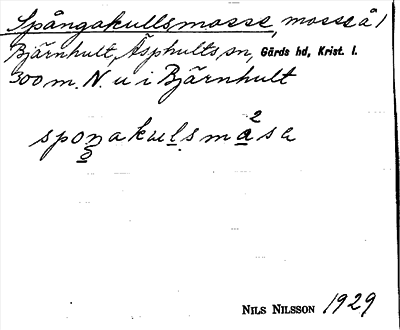 Spångakullsmosse, mosse å 1
Bjärnhult, Äsphults sn, Gärds hd, Krist. l.
300 m. N. u i Bjärnhult
spoŋakulsmåsa
2
NILS NILSSON 1929